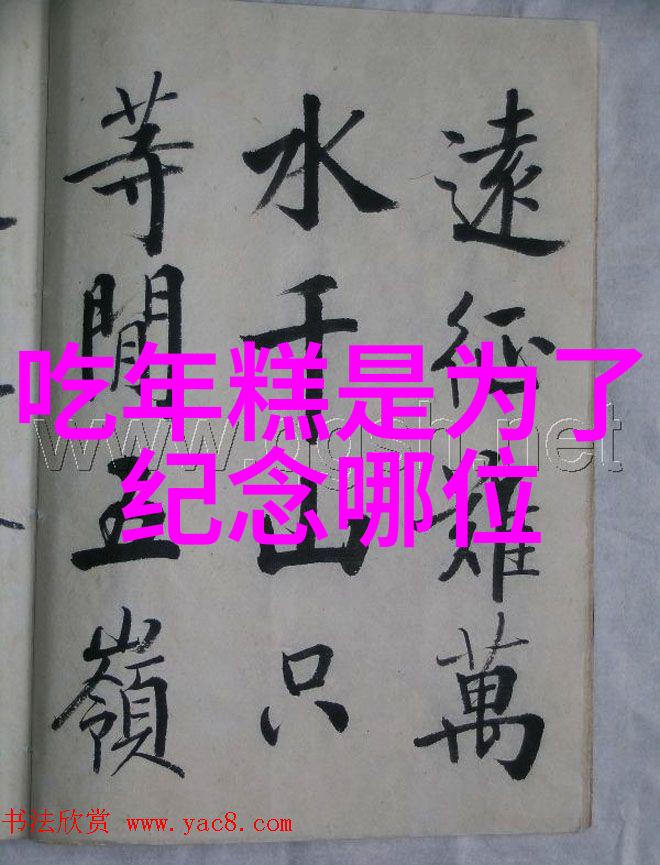 遠征難萬
水千山只
等閒五嶺
吃年糕是为了
纪念哪位
书法欣赏 www.yac8.com